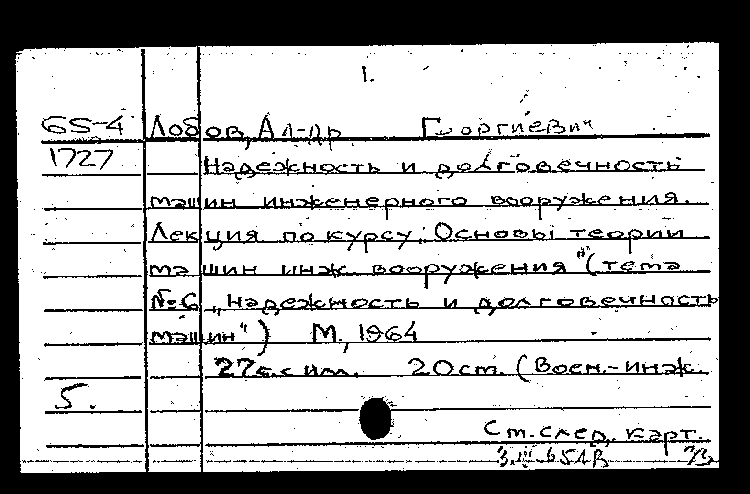 1.
65-4 Лобов, Ал-др Георгиевич
1727 Надежность и долговечность
машин инженерного вооружения.
Лекция по курсу „Основы теории
машин инж. вооружения" (тема
№6 „Надежность и долговечность
машин") М., 1964
27 с. с ил. 20 см. (Воен.-инж.
5.
См. след. карт.